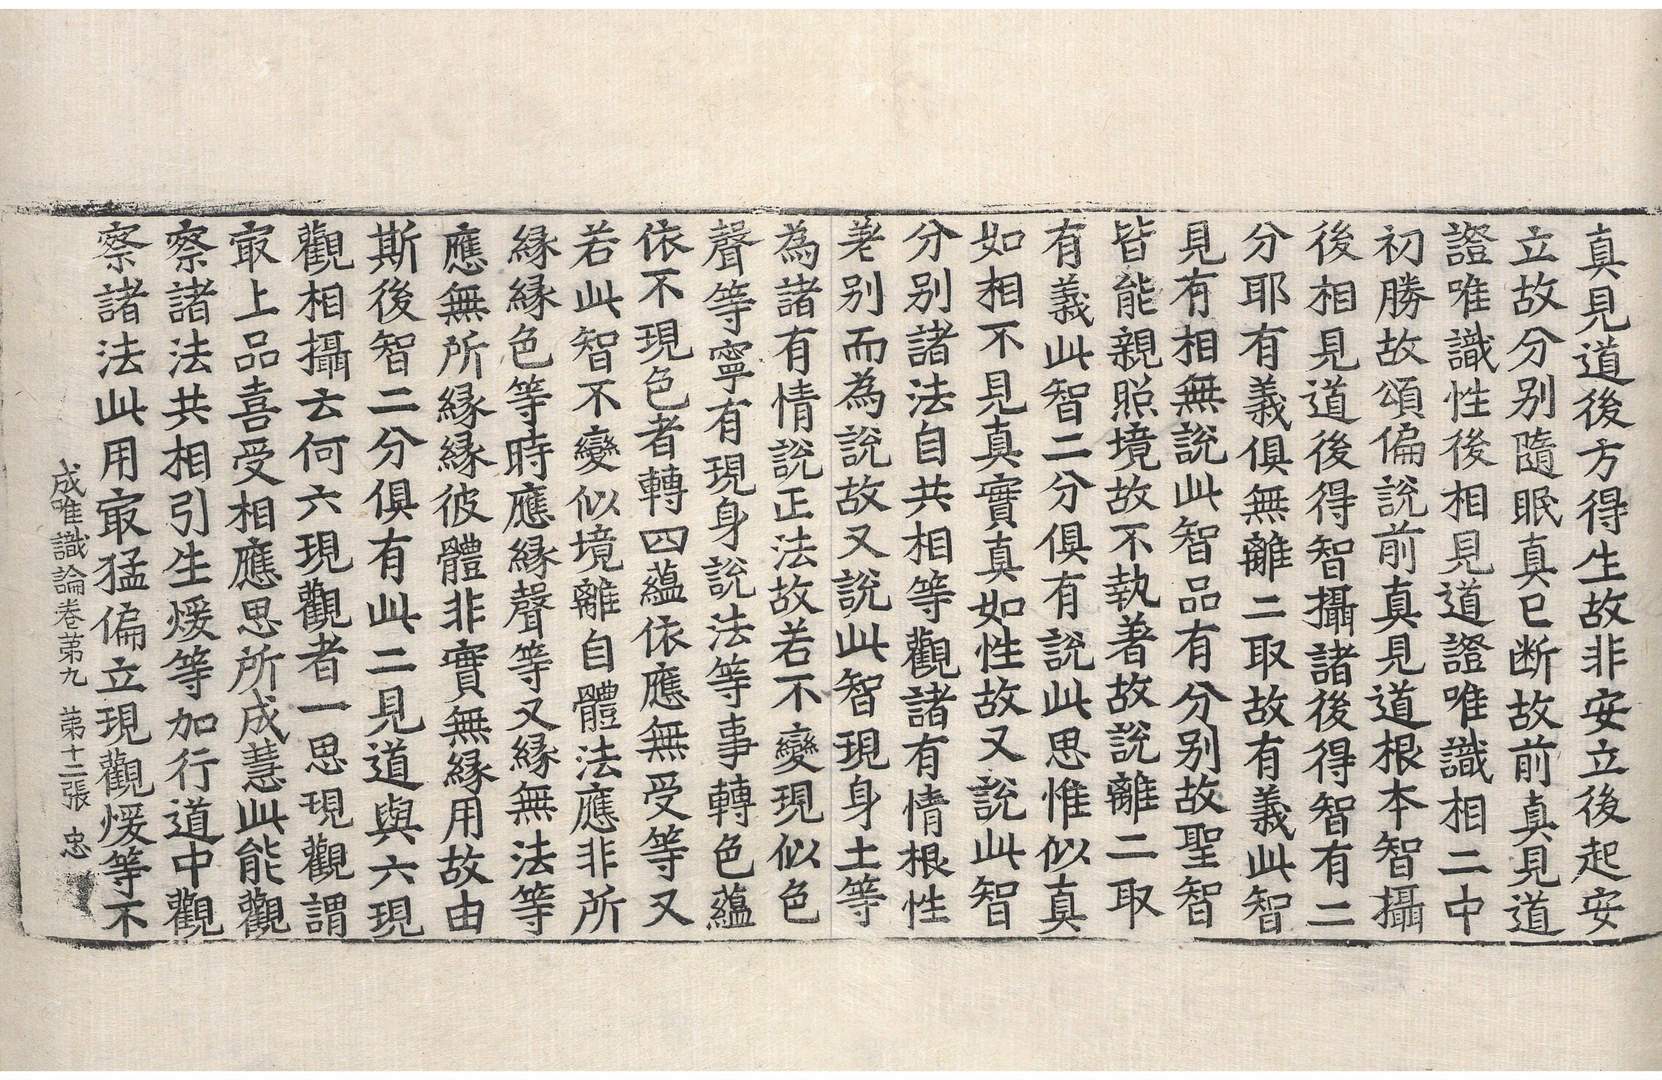 真見道後方得生故非安立後起安
立故分別隨眠真已断故前真見道
證唯識性後相見道證唯識相二中
初勝故頌偏說前真見道根本智攝
後相見道後得智攝諸後得智有二
分耶有義俱無離二取故有義此智
見有相無說此智品有分別故聖智
皆能親照境故不執著故說離二取
有義此智二分俱有說此思惟似真
如相不見真實真如性故又說此智
分別諸法自共相等觀諸有情根性
差別而為說故又說此智現身土等
為諸有情說正法故若不變現似色
聲等寧有現身說法等事轉色蘊
依不現色者轉四蘊依應無受等又
若此智不變似境離自體法應非所
緣緣色等時應緣聲等又緣無法等
應無所緣緣彼體非實無緣用故由
斯後智二分俱有此二見道與六現
觀相攝云何六現觀者一思現觀謂
㝡上品喜受相應思所成慧此能觀
察諸法共相引生煖等加行道中觀
察諸法此用㝡猛偏立現觀煖等不
成唯識論卷第九 第十二張 忠